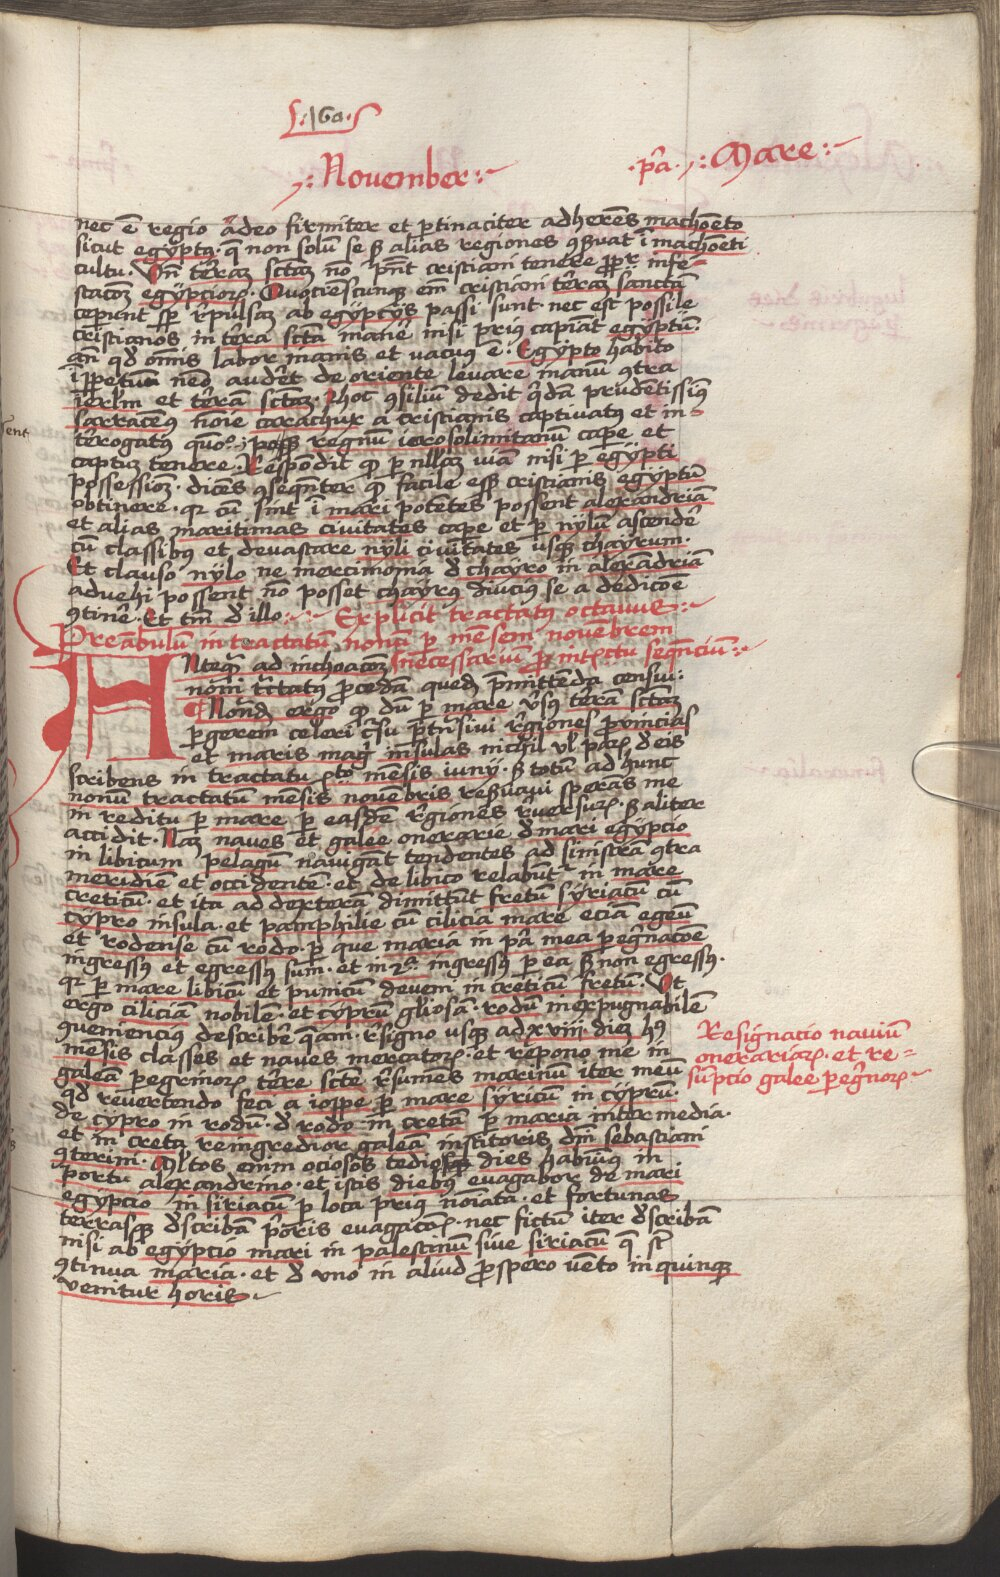 160
November
pa Mare
nec e regio adeo firmiter et ptinaciter adherens machoeto
sicut egyptus q non solu se s alias regiones 9suat i machoeti
cultu Un terra scta no pnt cristiani tenere ppr infe
stacoem egypcior Quociescunq em cristiani terra sancta
ceperint sp repulsa ab egyptys passi sunt nec est possile
cristianos in terra scta mane nisi prius capiat egyptu
an qd omnis labor inanis et vacuus e Egypto habito
ippetuu nemo auderet de oriente levare manu 9tra
ierlm et terra scta hoc 9siliu dedit quda prudentissimus
sarracenus noie carachux a cristianis captivatus et in
terrogatus quo posset regnu ierosolimitanu cape et
captu tenere Respondit q p nulla via nisi p egypti
possessioe dicens 9sequenter q facile esset cristianis egyptu
obtinere qr cu sint i mari potetes possent alexandria
et alias maritimas civitates cape et p nylu ascendere
cu classibus et devastare nyli civitates usq chayrum
Et clauso nylo ne mercimonia d chayro in alexandria
advehi possent no posset chayrus diucius se a dedicoe
9tinere Et tm d illo Explicit tractatus octavus
Preambulu in tractatu nonu p mensem novebrem
necessariu p intellectu sequenciu
Anteq ad inchoacoem
noni tractatus pcedam queda pmittenda censui
Nonand ergo q du p mare versus terra scta
pgerem celeri cursu ptnsivi regiones provincias
et maris magni insulas nichil vel paru d eis
scribens in tractatu 4to mensis iuny s totu ad hunc
nonu tractatu mensis novebris reservavi sperans me
in reditu p mare p easde regiones reversur s aliter
accidit Nam naves et galee onerarie d mari egypcio
in libicum pelagus navigat tendentes ad sinistra 9tra
meridie et occidente et de libico relabunt in mare
creticu et ita ad dextera dimittut fretu syriacu cu
cypro insula et pamphilie cu cilicia mare ecia egeu
et rodense cu rodo p que maria in pa mea pegnacoe
ingressus et egressus sum et in 2a ingressus p ea s non egressus
qr p mare libicu et punicu deveni in creticu fretu Ut
ergo cilicia nobile et cypru gliosa rodu inexpugnabile
9veniencius describe qam resigno usq ad xviii die hus
mensis classes et naves mercator et repono me in
galea pegrinor terre scte resumens marinu iter meu
qd revertendo feci a ioppe p mare syricu in cypru
de cypro in rodu d rodo in creta p maria intermedia
et in creta reingredior galea institoris dni sebastiani
9tarini Multos enim ociosos tediosq dies habuimus in
portu alexandrino et istis diebus evagabor de mari
egypcio in siriacu p loca prius noiata et fortunas
terrasq describa prioris evagacois nec fictu iter describa
nisi ab egypcio mari in palestinu sive siriacu q st
9tinua maria et d uno in aliud prospero vento in quinq
venitur horis
Resignacio naviu
onerariar et re
supcio galee pegnor